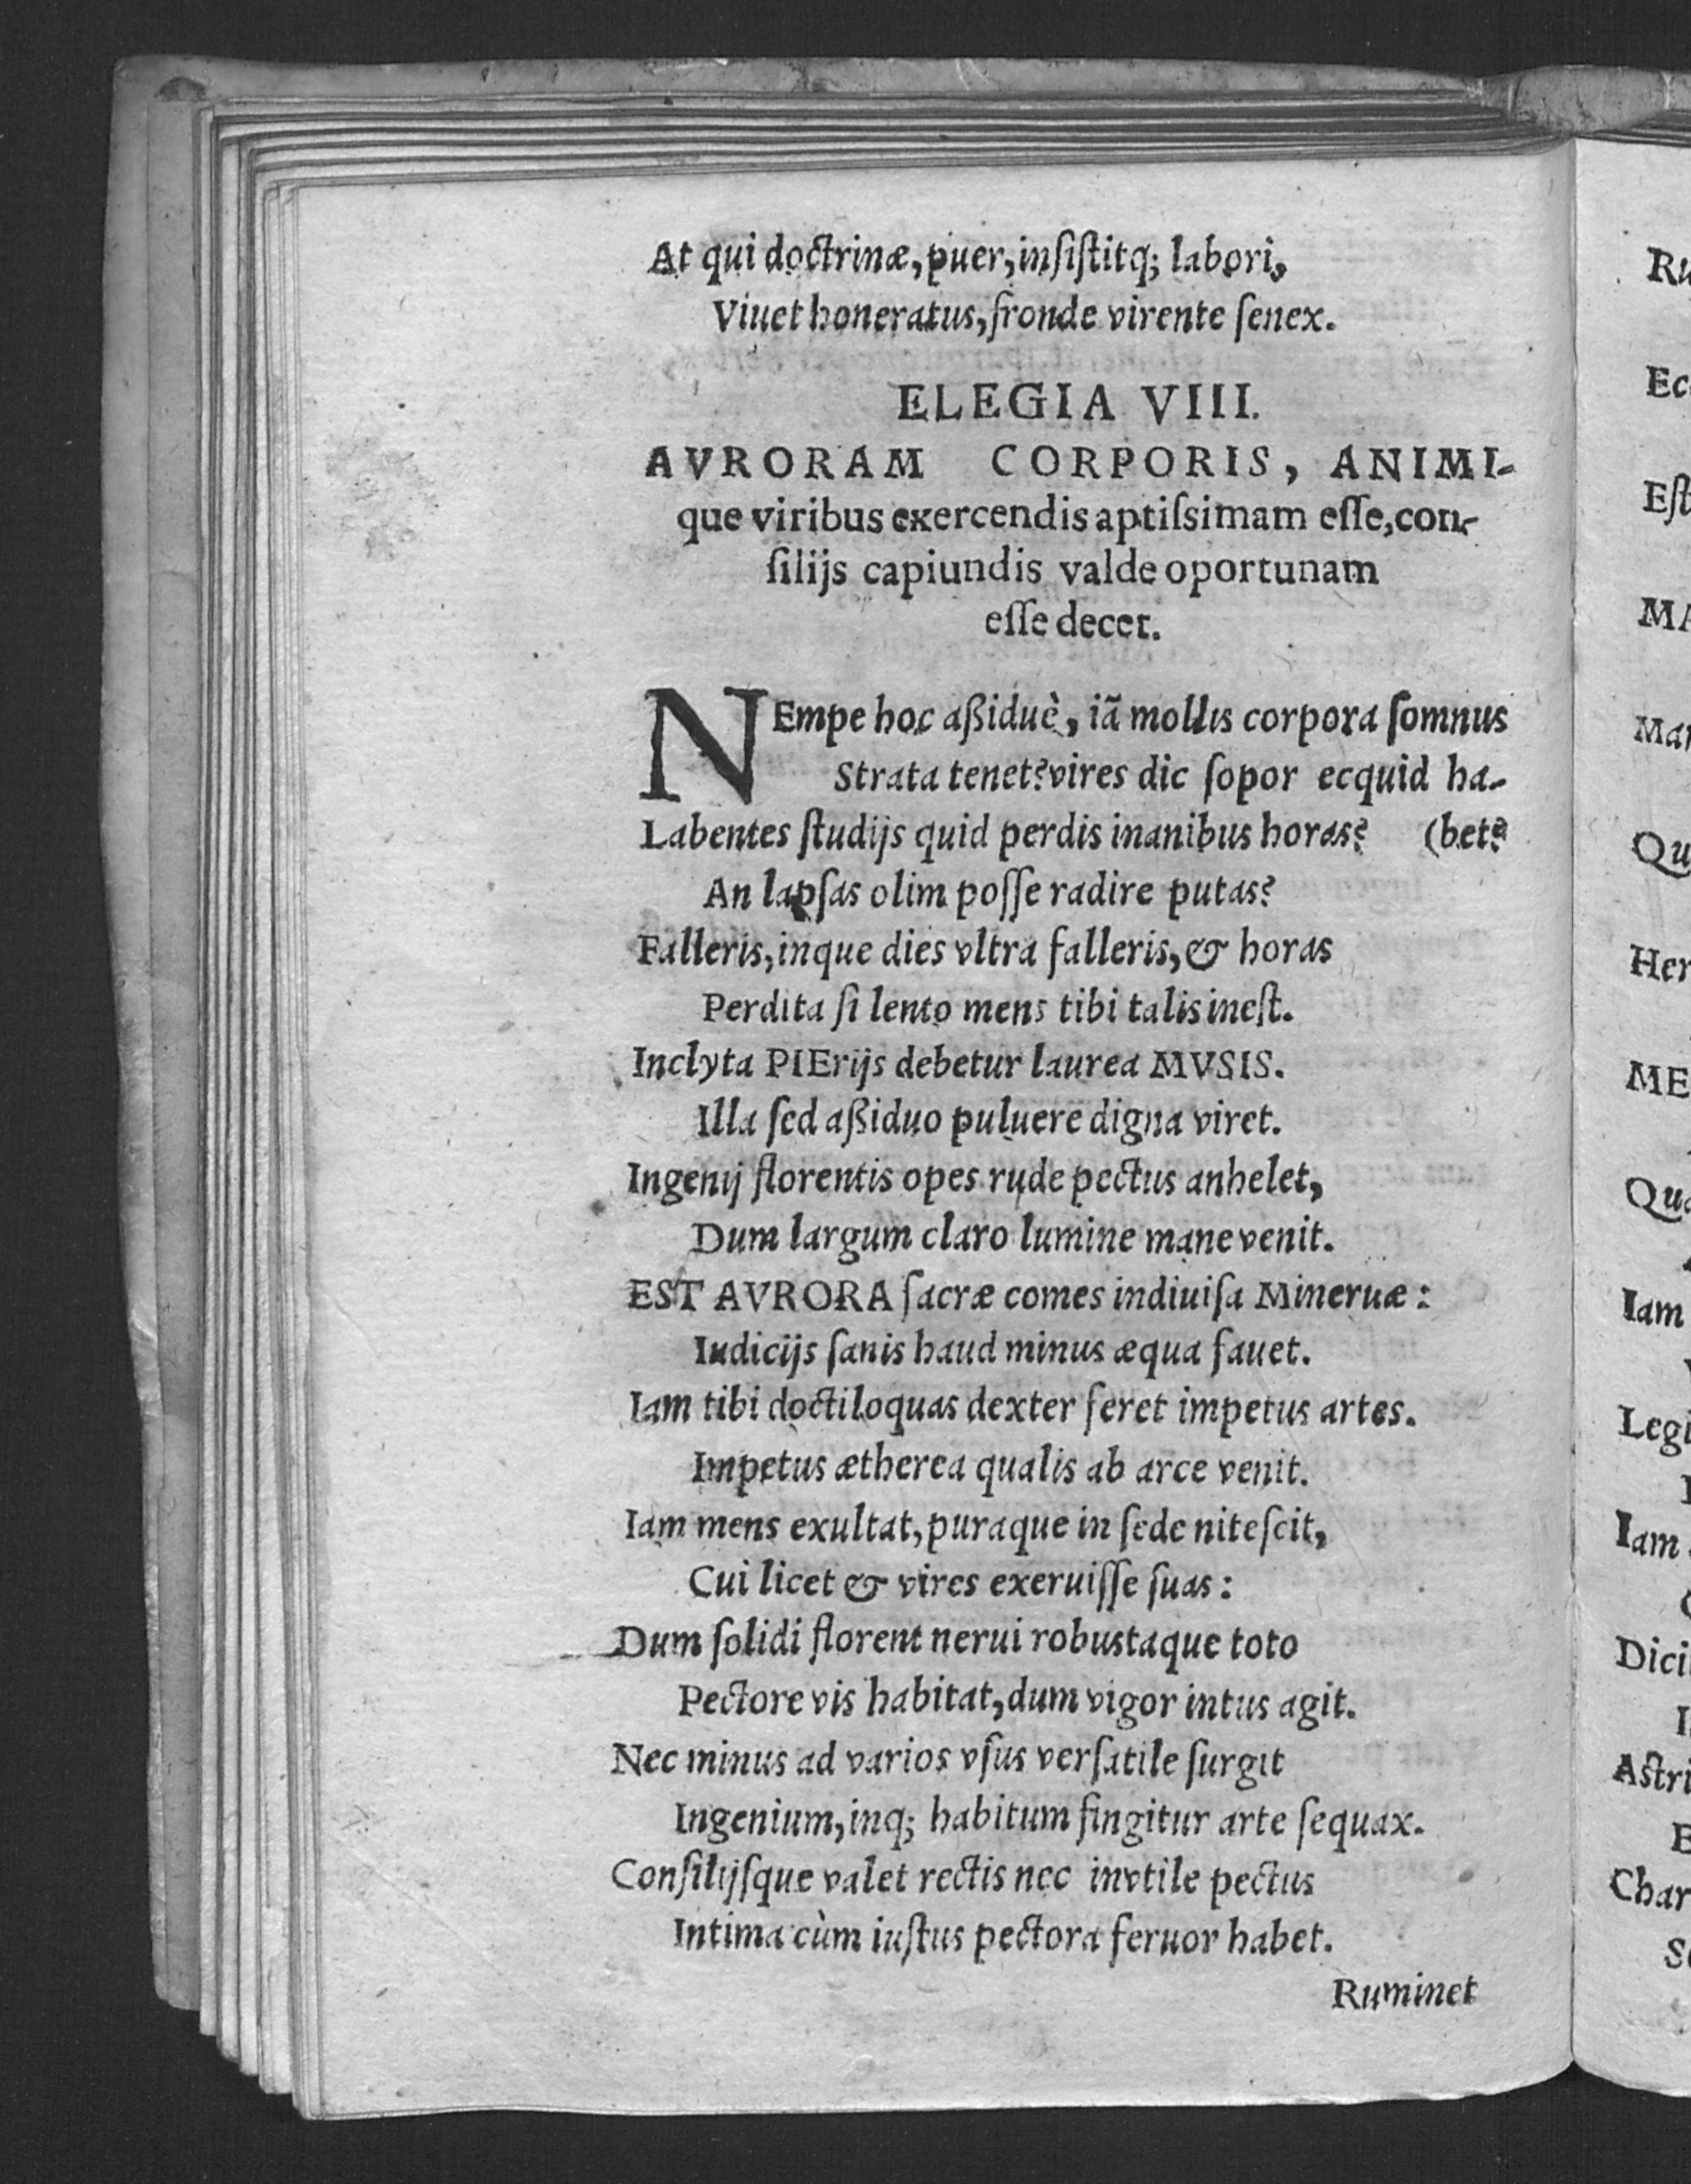 At qui doctrinæ, puer, insistitq; labori,
Viuet honeratus, fronde virente senex.
ELEGIA VIII.
AVRORAM CORPORIS, ANIMI-
que viribus exercendis aptissimam esse, con-
silijs capiundis valde oportunam
esse decet.
NEmpe hoc aßiduè, iã mollis corpora somnus
Strata tenet? vires dic sopor ecquid ha-
Labentes studijs quid perdis inanibus horas? (bet?
An lapsas olim posse radire putas?
Falleris, inque dies vltra falleris, & horas
Perdita si lento mens tibi talis inest.
Inclyta PIErijs debetur laurea MVSIS.
Illa sed aßiduo puluere digna viret.
Ingenij florentis opes rude pectus anhelet,
Dum largum claro lumine mane venit.
EST AVRORA sacræ comes indiuisa Mineruæ:
Iudicijs sanis haud minus æqua fauet.
Iam tibi doctiloquas dexter feret impetus artes.
Impetus ætherea qualis ab arce venit.
Iam mens exultat, puraque in sede nitescit,
Cui licet & vires exeruisse suas:
Dum solidi florent nerui robustaque toto
Pectore vis habitat, dum vigor intus agit.
Nec minus ad varios vsus versatile surgit
Ingenium, inq; habitum fingitur arte sequax.
Consilijsque valet rectis nec invtile pectus
Intima cùm iustus pectora feruor habet.
Ruminet
Ec
Est
Her
ME
Iam
Legi
Iam
Dici
Astri
Char